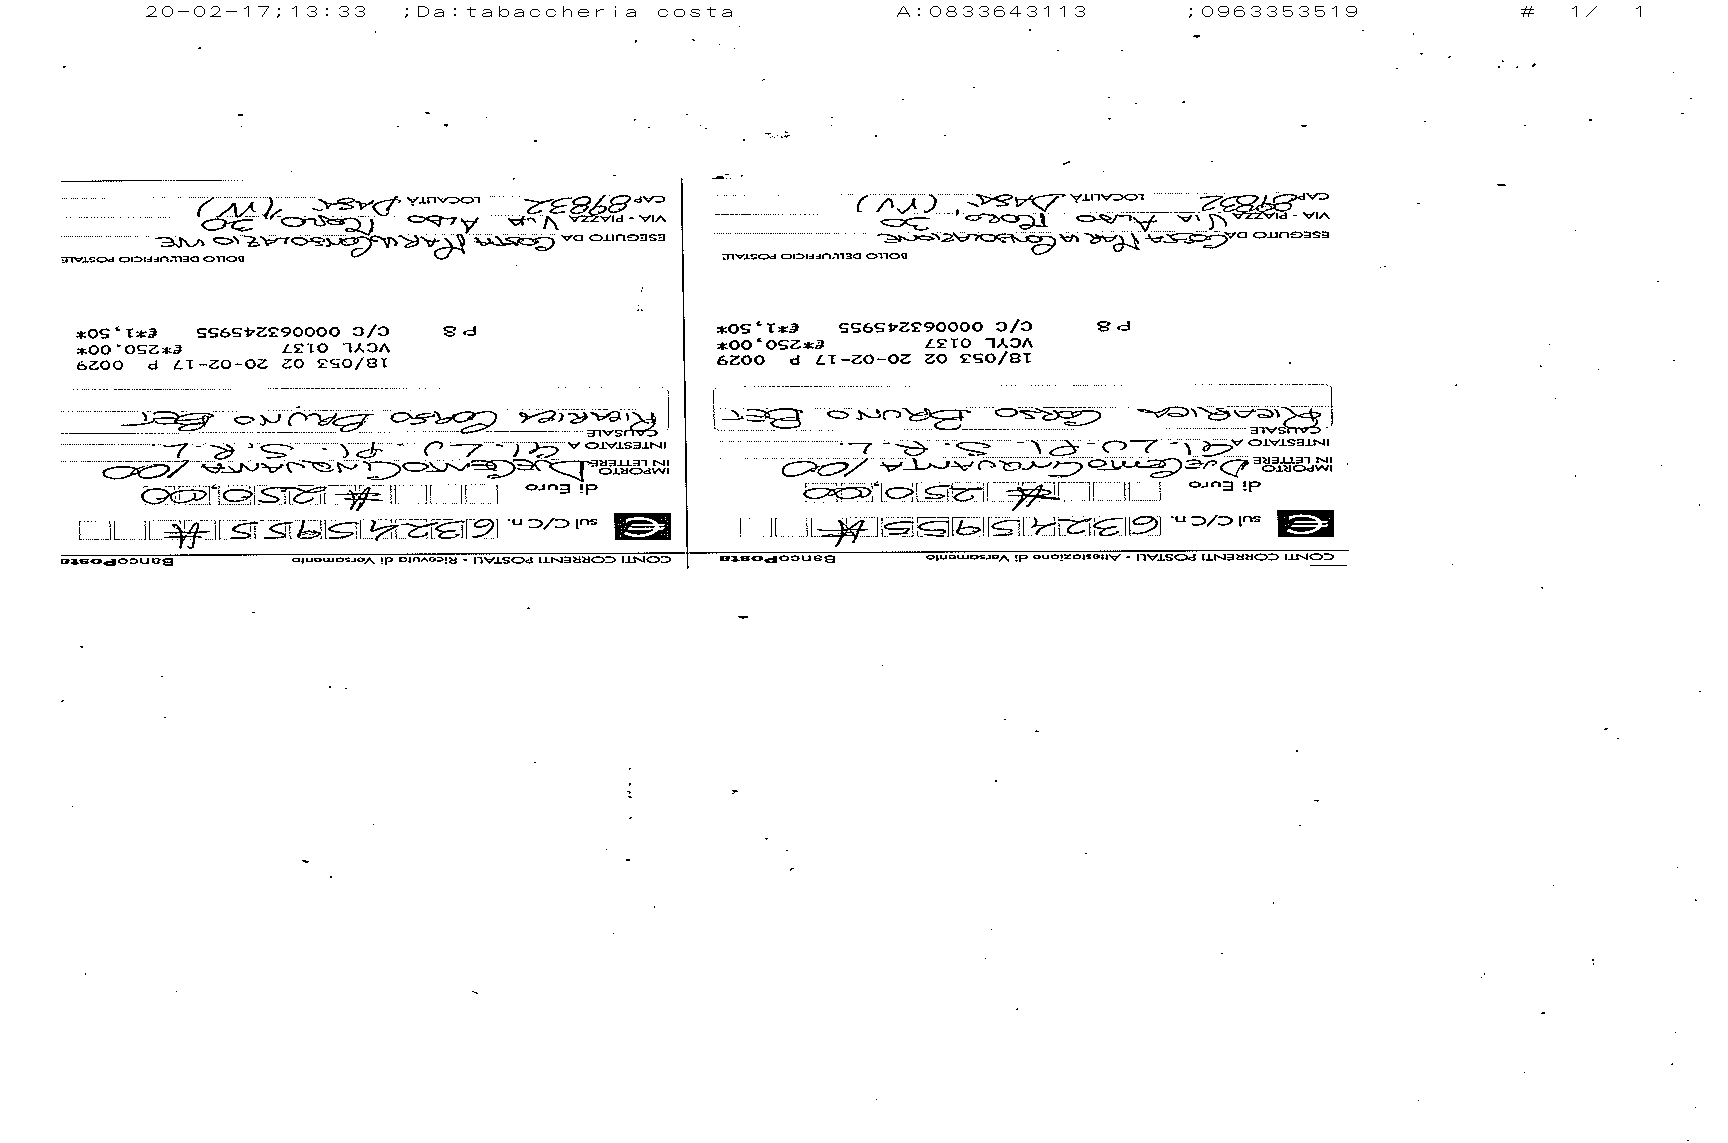 20-02-17;13:33 ;Da:tabaccheria costa A:0833643113 ;0963353519 # 1/ 1
CONTI CORRENTI POSTALI - Attestazione di Versamento BancoPosta
€ sul C/C n. 63245955 #
di Euro # 250,00
IMPORTO IN LETTERE DueCentoCinquanta /00
INTESTATO A GI.LU.PI. S.R.L.
CAUSALE
RICARICA CORSO BRUNO BET
18/053 02 20-02-17 P 0029
VCYL 0137 €*250,00*
P 8 C/C 000063245955 €*1,50*
BOLLO DELL'UFFICIO POSTALE
ESEGUITO DA COSTA MARIA CONSOLAZIONE
VIA - PIAZZA VIA ALDO MORO, 30
CAP 89832 LOCALITÀ DASA' (VV)
CONTI CORRENTI POSTALI - Ricevuta di Versamento BancoPosta
€ sul C/C n. 63245955 #
di Euro # 250,00
IMPORTO IN LETTERE DueCentoCinquanta /00
INTESTATO A GI.LU.PI. S.R.L.
CAUSALE
RICARICA CORSO BRUNO BET
18/053 02 20-02-17 P 0029
VCYL 0137 €*250,00*
P 8 C/C 000063245955 €*1,50*
BOLLO DELL'UFFICIO POSTALE
ESEGUITO DA COSTA MARIA CONSOLAZIONE
VIA - PIAZZA VIA ALDO MORO 30
CAP 89832 LOCALITÀ DASA' (VV)